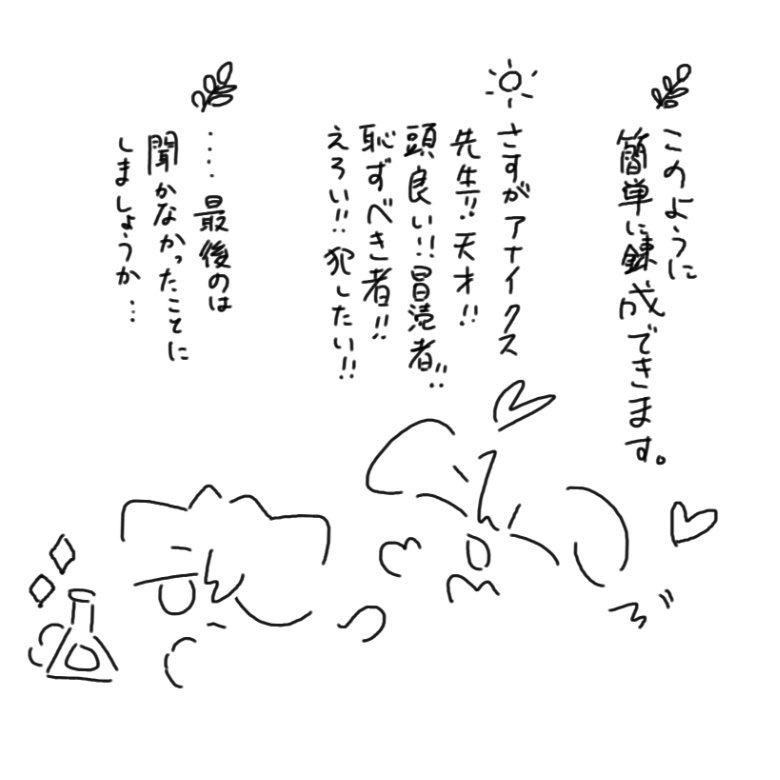 このように
簡単に錬成できます。
さすがアナイクス
先生!!天才!!
頭良い!!冒涜者!!
恥ずべき者!!
えろい!!犯したい!!
....最後のは
聞かなかったことに
しましょうか...